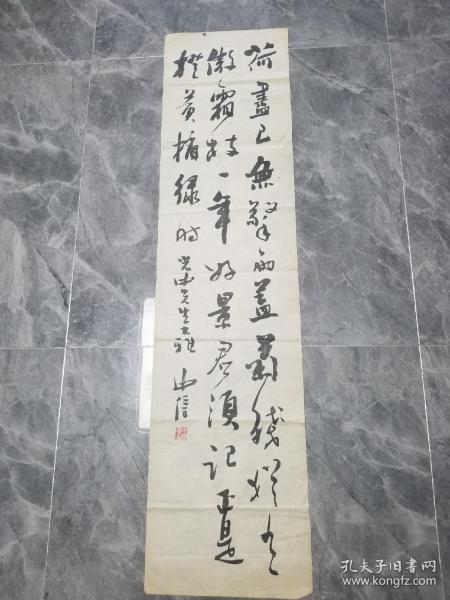 荷盡已無擎雨蓋菊殘猶有
傲霜枝一年好景君須記正是
橙黄橘綠时
先生大雅
孔夫子旧书网
www.kongfz.com